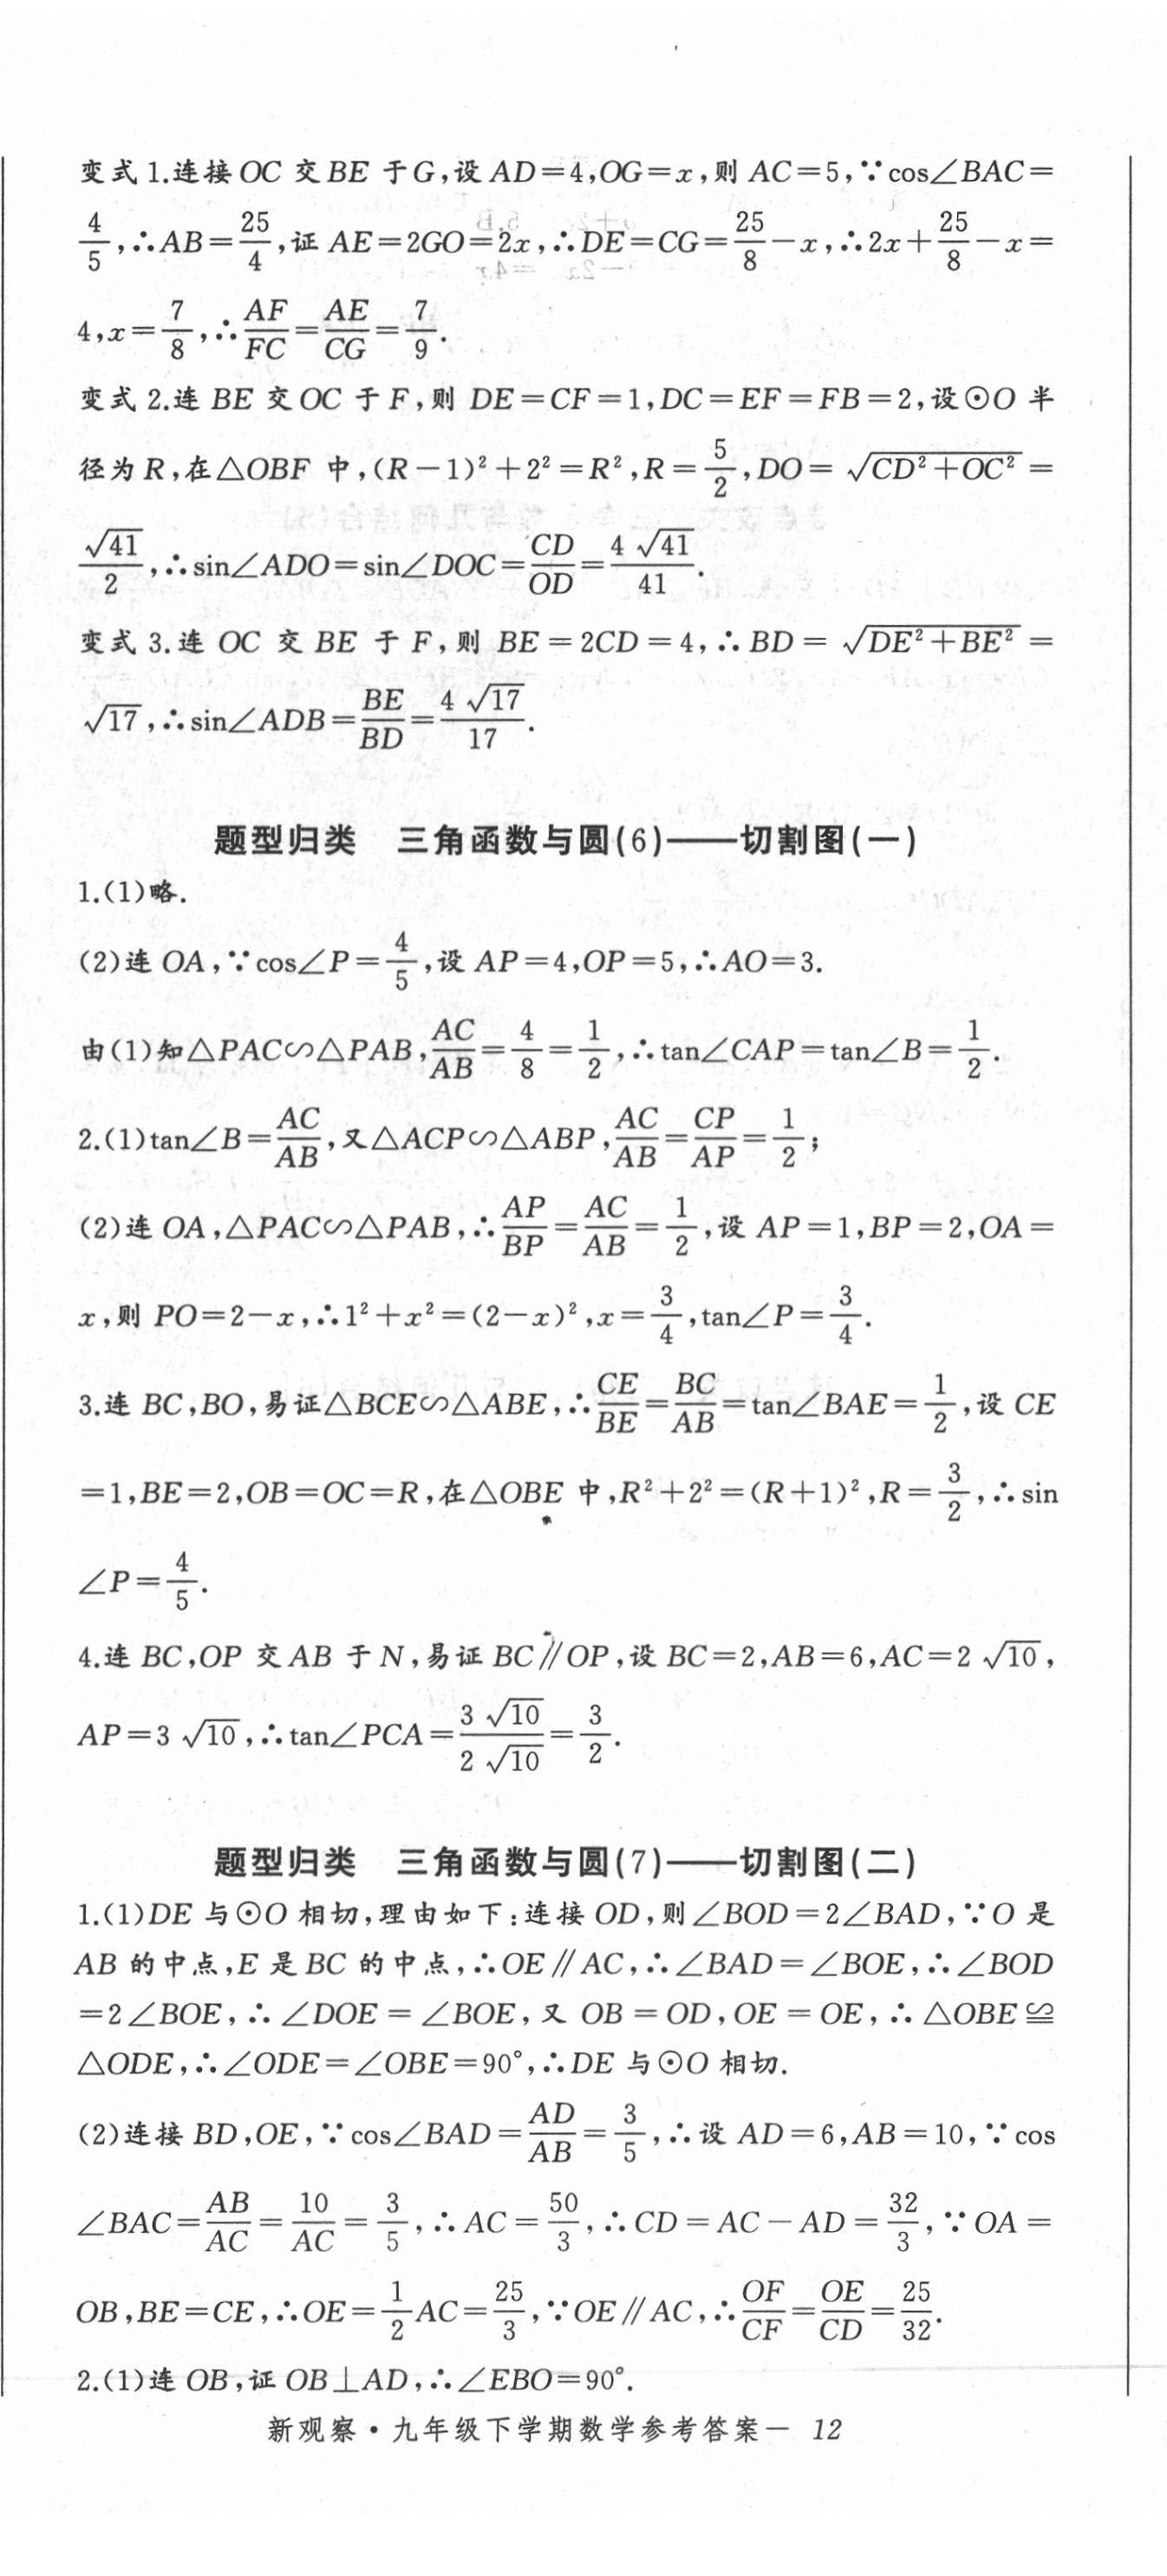 变式 1.连接 OC 交 BE 于 G,设 AD=4,OG=x,则 AC=5,∵cos∠BAC=
4/5,∴AB=25/4,证 AE=2GO=2x,∴DE=CG=25/8−x,∴2x+25/8−x=
4,x=7/8,∴AF/FC=AE/CG=7/9.
变式 2.连 BE 交 OC 于 F,则 DE=CF=1,DC=EF=FB=2,设⊙O 半
径为 R,在△OBF 中,(R−1)²+2²=R²,R=5/2,DO=√(CD²+OC²)=
√41/2,∴sin∠ADO=sin∠DOC=CD/OD=4√41/41.
变式 3.连 OC 交 BE 于 F,则 BE=2CD=4,∴BD=√(DE²+BE²)=
√17,∴sin∠ADB=BE/BD=4√17/17.
题型归类 三角函数与圆(6)——切割图(一)
1.(1)略.
(2)连 OA,∵cos∠P=4/5,设 AP=4,OP=5,∴AO=3.
由(1)知△PAC∽△PAB,AC/AB=4/8=1/2,∴tan∠CAP=tan∠B=1/2.
2.(1)tan∠B=AC/AB,又△ACP∽△ABP,AC/AB=CP/AP=1/2;
(2)连 OA,△PAC∽△PAB,∴AP/BP=AC/AB=1/2,设 AP=1,BP=2,OA=
x,则 PO=2−x,∴1²+x²=(2−x)²,x=3/4,tan∠P=3/4.
3.连 BC,BO,易证△BCE∽△ABE,∴CE/BE=BC/AB=tan∠BAE=1/2,设 CE
=1,BE=2,OB=OC=R,在△OBE 中,R²+2²=(R+1)²,R=3/2,∴sin
∠P=4/5.
4.连 BC,OP 交 AB 于 N,易证 BC∥OP,设 BC=2,AB=6,AC=2√10,
AP=3√10,∴tan∠PCA=3√10/2√10=3/2.
题型归类 三角函数与圆(7)——切割图(二)
1.(1)DE 与⊙O 相切,理由如下:连接 OD,则∠BOD=2∠BAD,∵O 是
AB 的中点,E 是 BC 的中点,∴OE∥AC,∴∠BAD=∠BOE,∴∠BOD
=2∠BOE,∴∠DOE=∠BOE,又 OB=OD,OE=OE,∴△OBE≌
△ODE,∴∠ODE=∠OBE=90°,∴DE 与⊙O 相切.
(2)连接 BD,OE,∵cos∠BAD=AD/AB=3/5,∴设 AD=6,AB=10,∵cos
∠BAC=AB/AC=10/AC=3/5,∴AC=50/3,∴CD=AC−AD=32/3,∵OA=
OB,BE=CE,∴OE=1/2AC=25/3,∵OE∥AC,∴OF/CF=OE/CD=25/32.
2.(1)连 OB,证 OB⊥AD,∴∠EBO=90°.
新观察·九年级下学期数学参考答案— 12